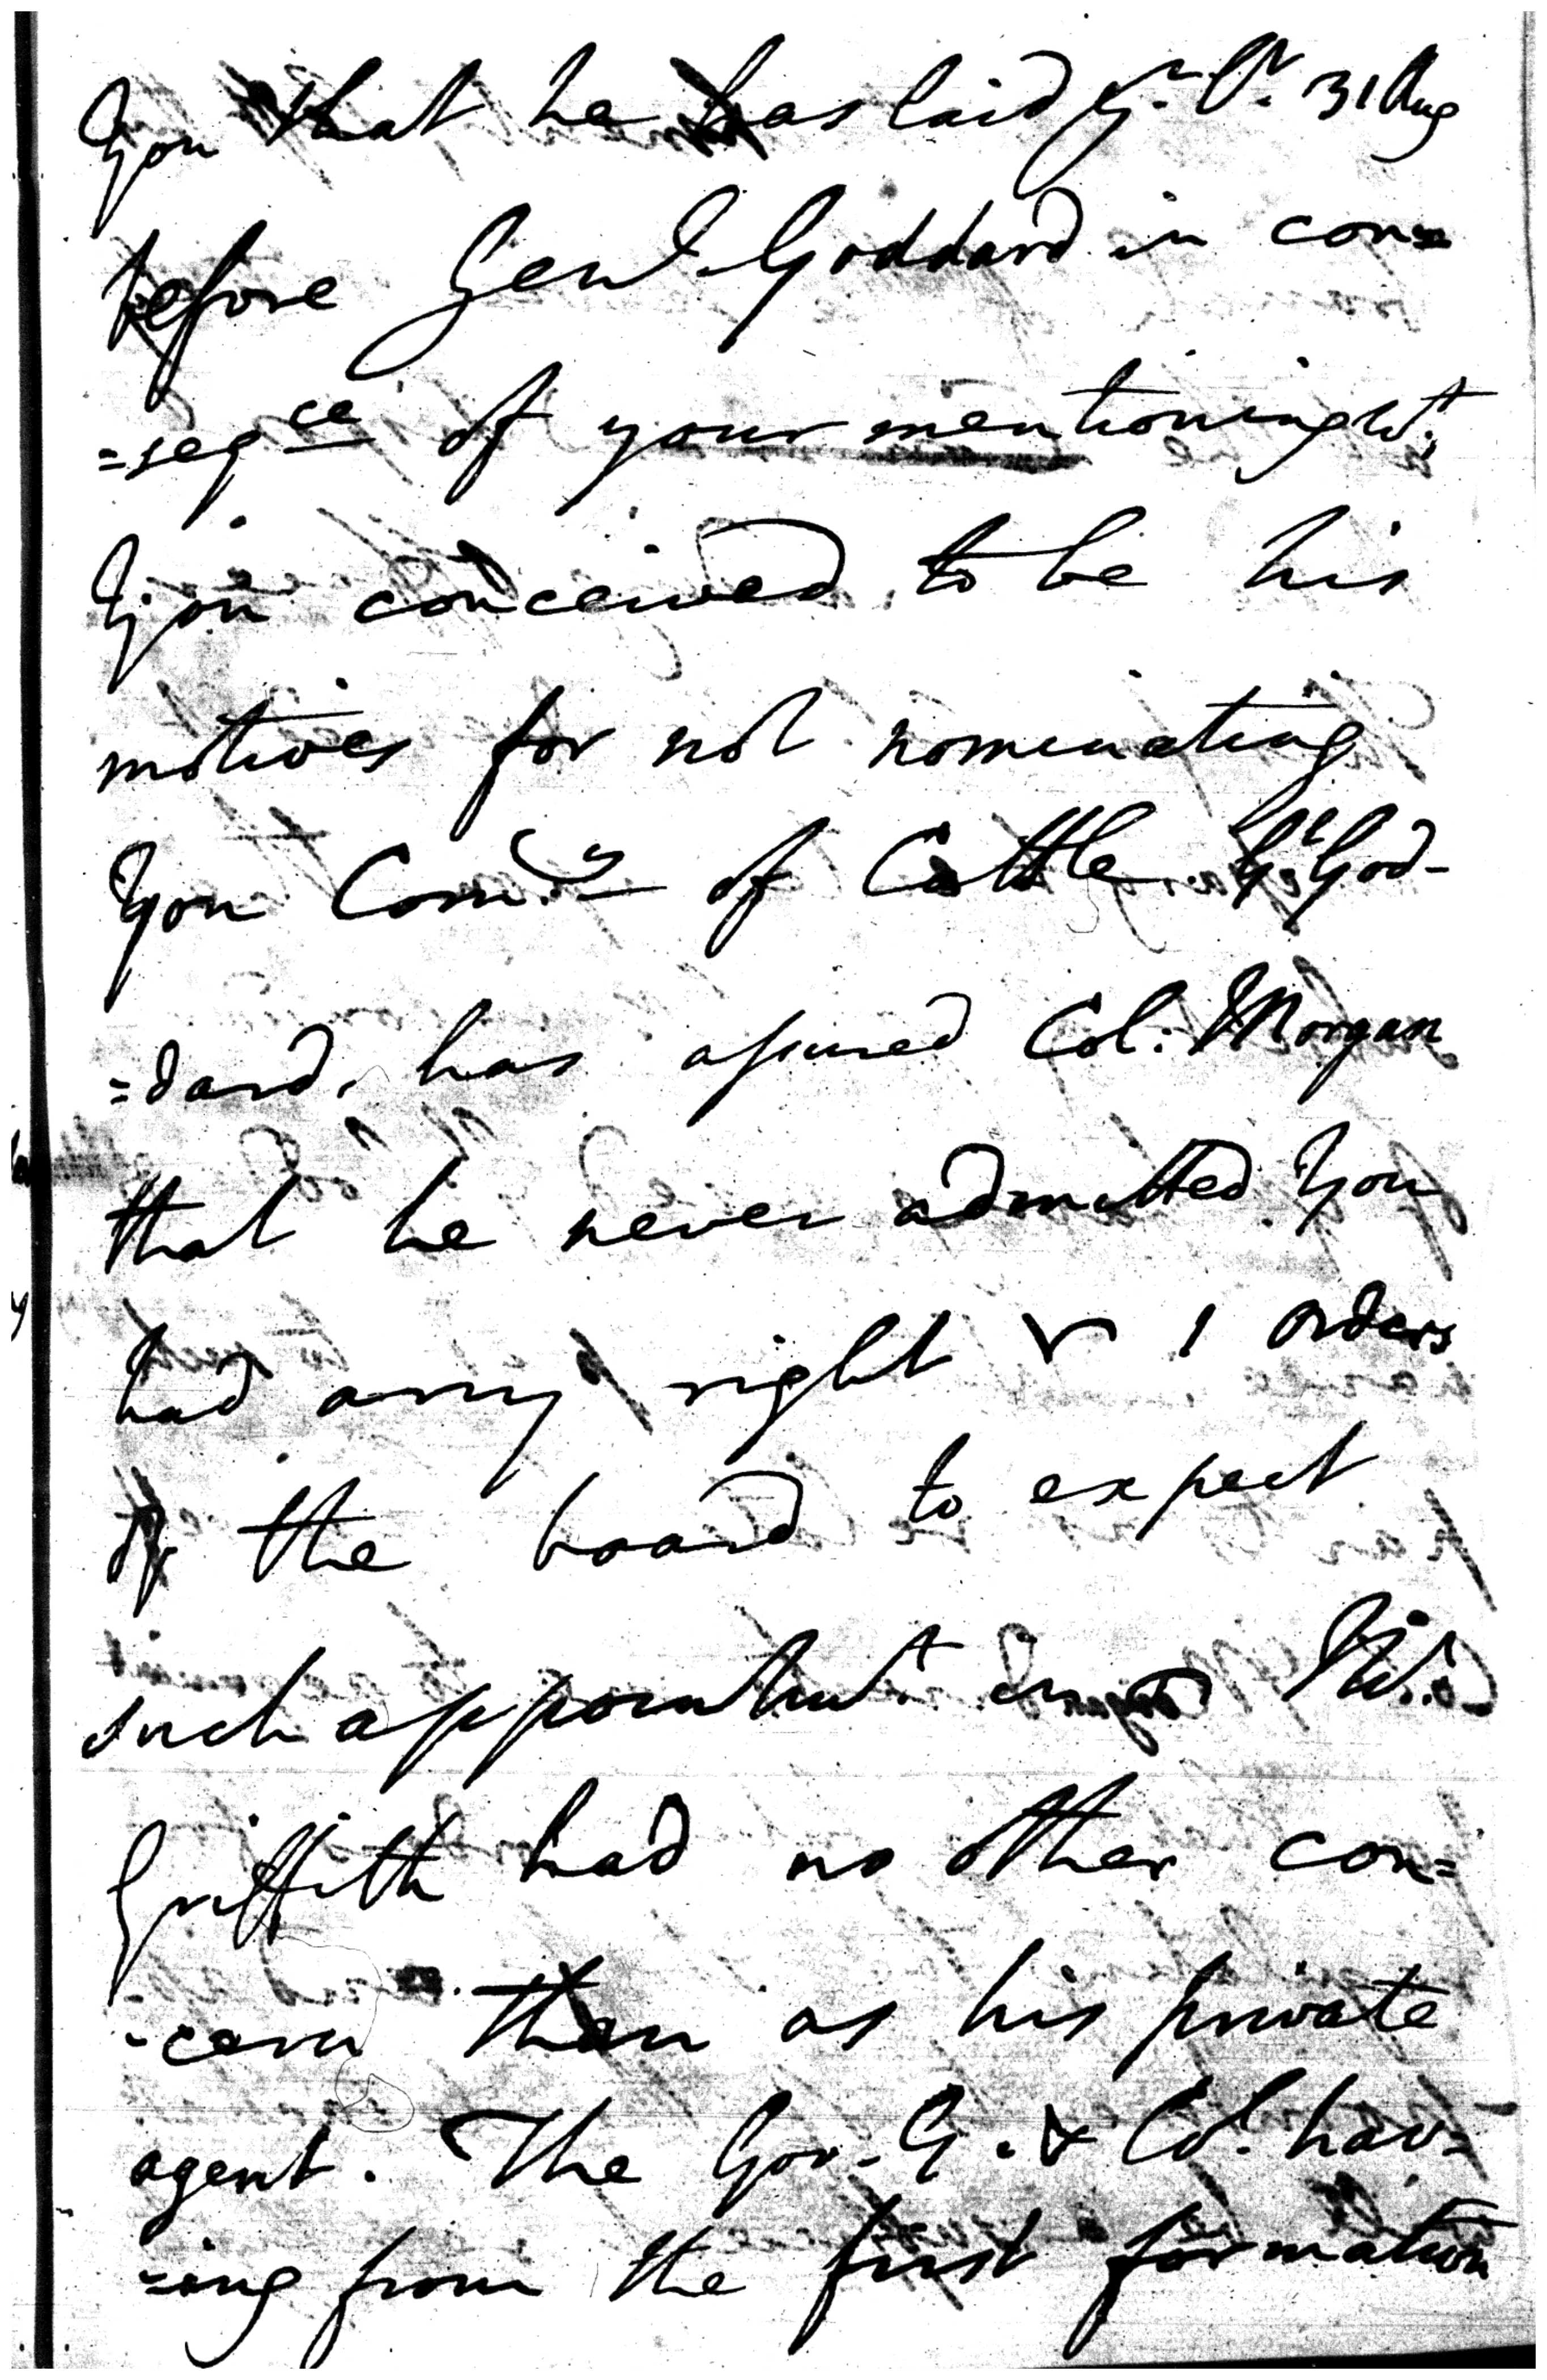 You that he has laid Yr. Lr. 31 Aug
before Genl. Goddard in con=
=seqce of your mentioning wt.
You conceived to be his
motives for not nominating
You Comy of Cattle. Gl God-
=dard, has assured Col: Morgan
that he never admitted You
had any right orders
of the board to expect
such appointmt. Mr.
Griffith had no other con=
-cern than as his private
agent. The Gov. G. & Cl. hav=
=ing from the first formation